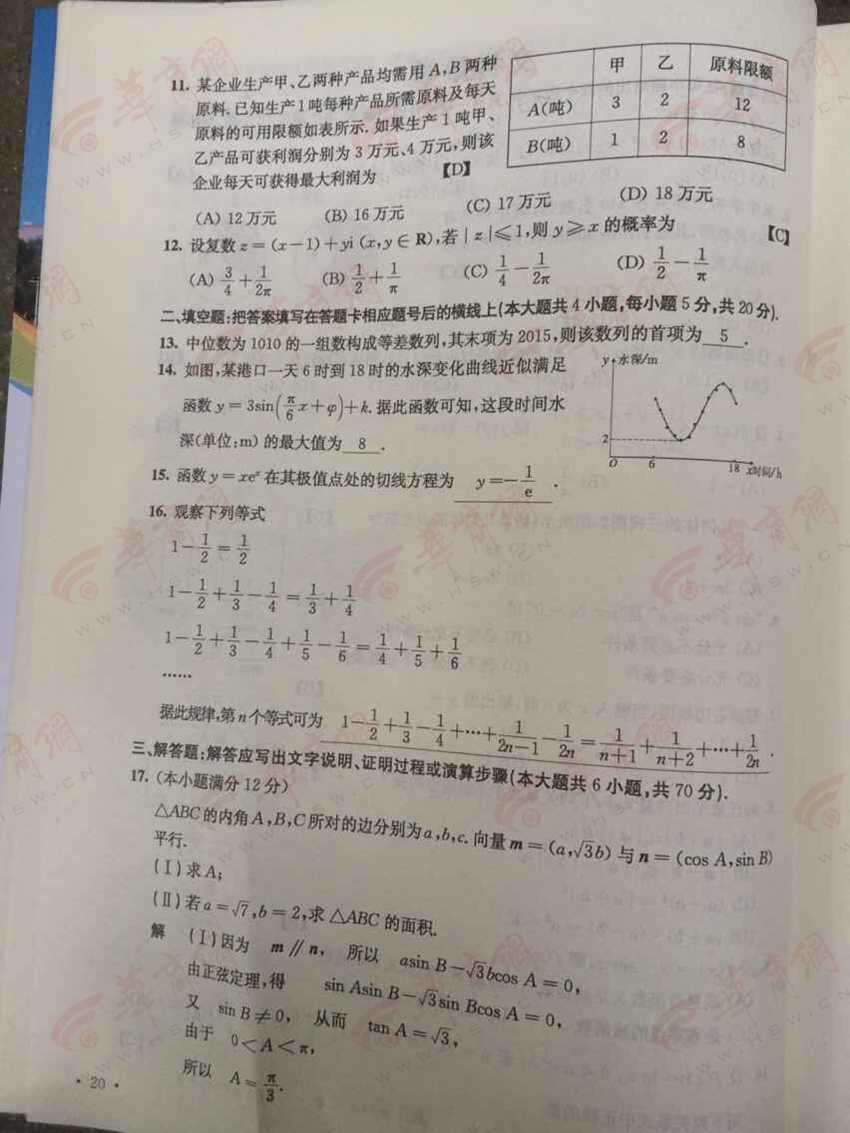 11. 某企业生产甲、乙两种产品均需用 A,B 两种
原料. 已知生产1吨每种产品所需原料及每天
原料的可用限额如表所示. 如果生产 1 吨甲、
乙产品可获利润分别为 3 万元、4 万元,则该
企业每天可获得最大利润为 【D】
甲 乙 原料限额
A(吨) 3 2 12
B(吨) 1 2 8
(A) 12 万元 (B) 16 万元 (C) 17 万元 (D) 18 万元
12. 设复数 z = (x−1)+yi (x,y∈R),若|z|⩽1,则 y⩾x 的概率为 【C】
(A) 3/4+1/2π (B) 1/2+1/π (C) 1/4−1/2π (D) 1/2−1/π
二、填空题:把答案填写在答题卡相应题号后的横线上(本大题共 4 小题,每小题 5 分,共 20 分).
13. 中位数为 1010 的一组数构成等差数列,其末项为 2015,则该数列的首项为 5 .
14. 如图,某港口一天 6 时到 18 时的水深变化曲线近似满足
函数 y = 3sin(π/6 x+φ)+k. 据此函数可知,这段时间水
深(单位:m) 的最大值为 8 .
y 水深/m
2
O 6 18 x时间/h
15. 函数 y = xeˣ 在其极值点处的切线方程为 y=−1/e .
16. 观察下列等式
1−1/2=1/2
1−1/2+1/3−1/4=1/3+1/4
1−1/2+1/3−1/4+1/5−1/6=1/4+1/5+1/6
……
据此规律,第 n 个等式可为 1−1/2+1/3−1/4+⋯+1/2n−1−1/2n=1/n+1+1/n+2+⋯+1/2n .
三、解答题:解答应写出文字说明、证明过程或演算步骤(本大题共 6 小题,共 70 分).
17. (本小题满分 12 分)
△ABC 的内角 A,B,C 所对的边分别为 a,b,c. 向量 m = (a,√3b) 与 n = (cos A,sin B)
平行.
(Ⅰ) 求 A;
(Ⅱ) 若 a = √7,b = 2,求 △ABC 的面积.
解 (Ⅰ) 因为 m∥n, 所以 asin B−√3bcos A = 0,
由正弦定理,得 sin Asin B−√3sin Bcos A = 0,
又 sin B≠0, 从而 tan A = √3,
由于 0<A<π,
所以 A=π/3.
· 20 ·
華育網
WWW.HSW.CN